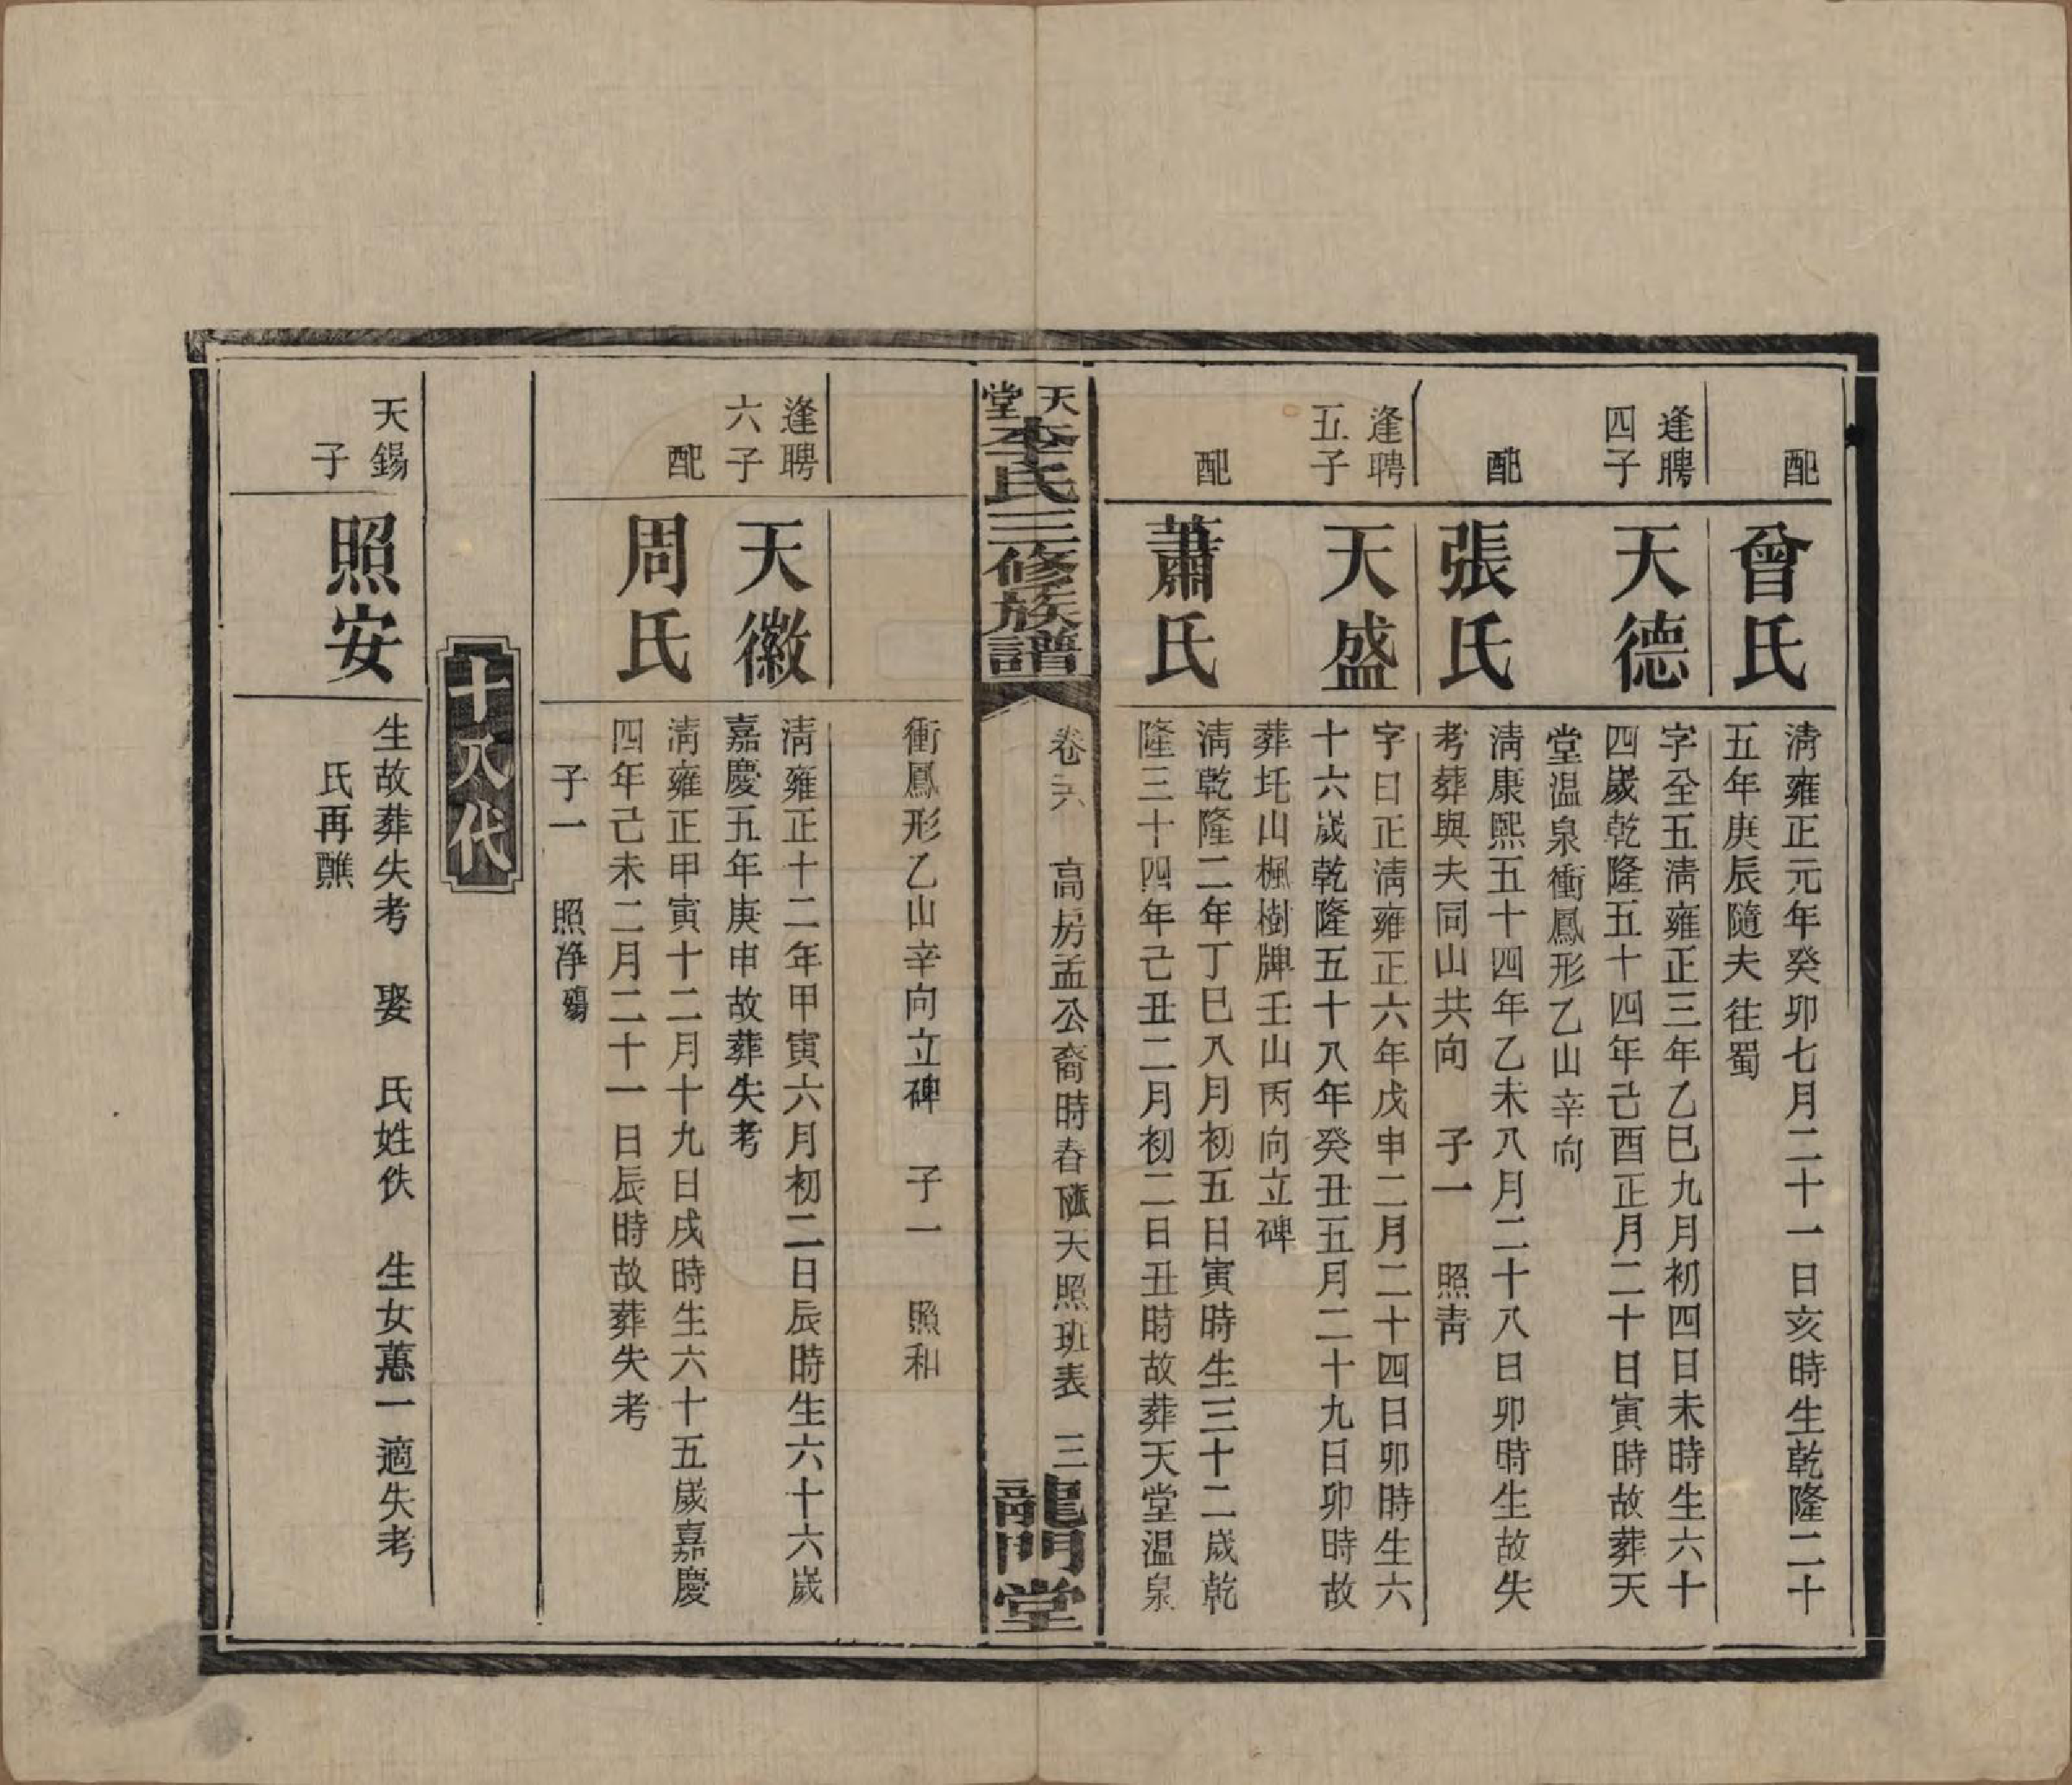 配
曾氏
清雍正元年癸卯七月二十一日亥時生乾隆二十
五年庚辰隨夫往蜀
逢聘
四子
天德
字全五清雍正三年乙巳九月初四日未時生六十
四歲乾隆五十四年己酉正月二十日寅時故葬天
堂温泉衝鳳形乙山辛向
配
張氏
清康熙五十四年乙未八月二十八日卯時生故失
考葬與夫同山共向 子一 照青
逢聘
五子
天盛
字日正清雍正六年戊申二月二十四日卯時生六
十六歲乾隆五十八年癸丑五月二十九日卯時故
葬圫山楓樹牌壬山丙向立碑
配
蕭氏
清乾隆二年丁巳八月初五日寅時生三十二歲乾
隆三十四年己丑二月初二日丑時故葬天堂温泉
天堂李氏三修族譜
卷六 高房孟公裔時春 天照班表 三
龍門堂
衝鳳形乙山辛向立碑 子一 照和
逢聘
六子
天徽
清雍正十二年甲寅六月初二日辰時生六十六歲
嘉慶五年庚申故葬失考
配
周氏
清雍正甲寅十二月十九日戌時生六十五歲嘉慶
四年己未二月二十一日辰時故葬失考
子一 照淨殤
十八代
天錫
子
照安
生故葬失考 娶 氏姓佚 生女蕙一適失考
氏再醮